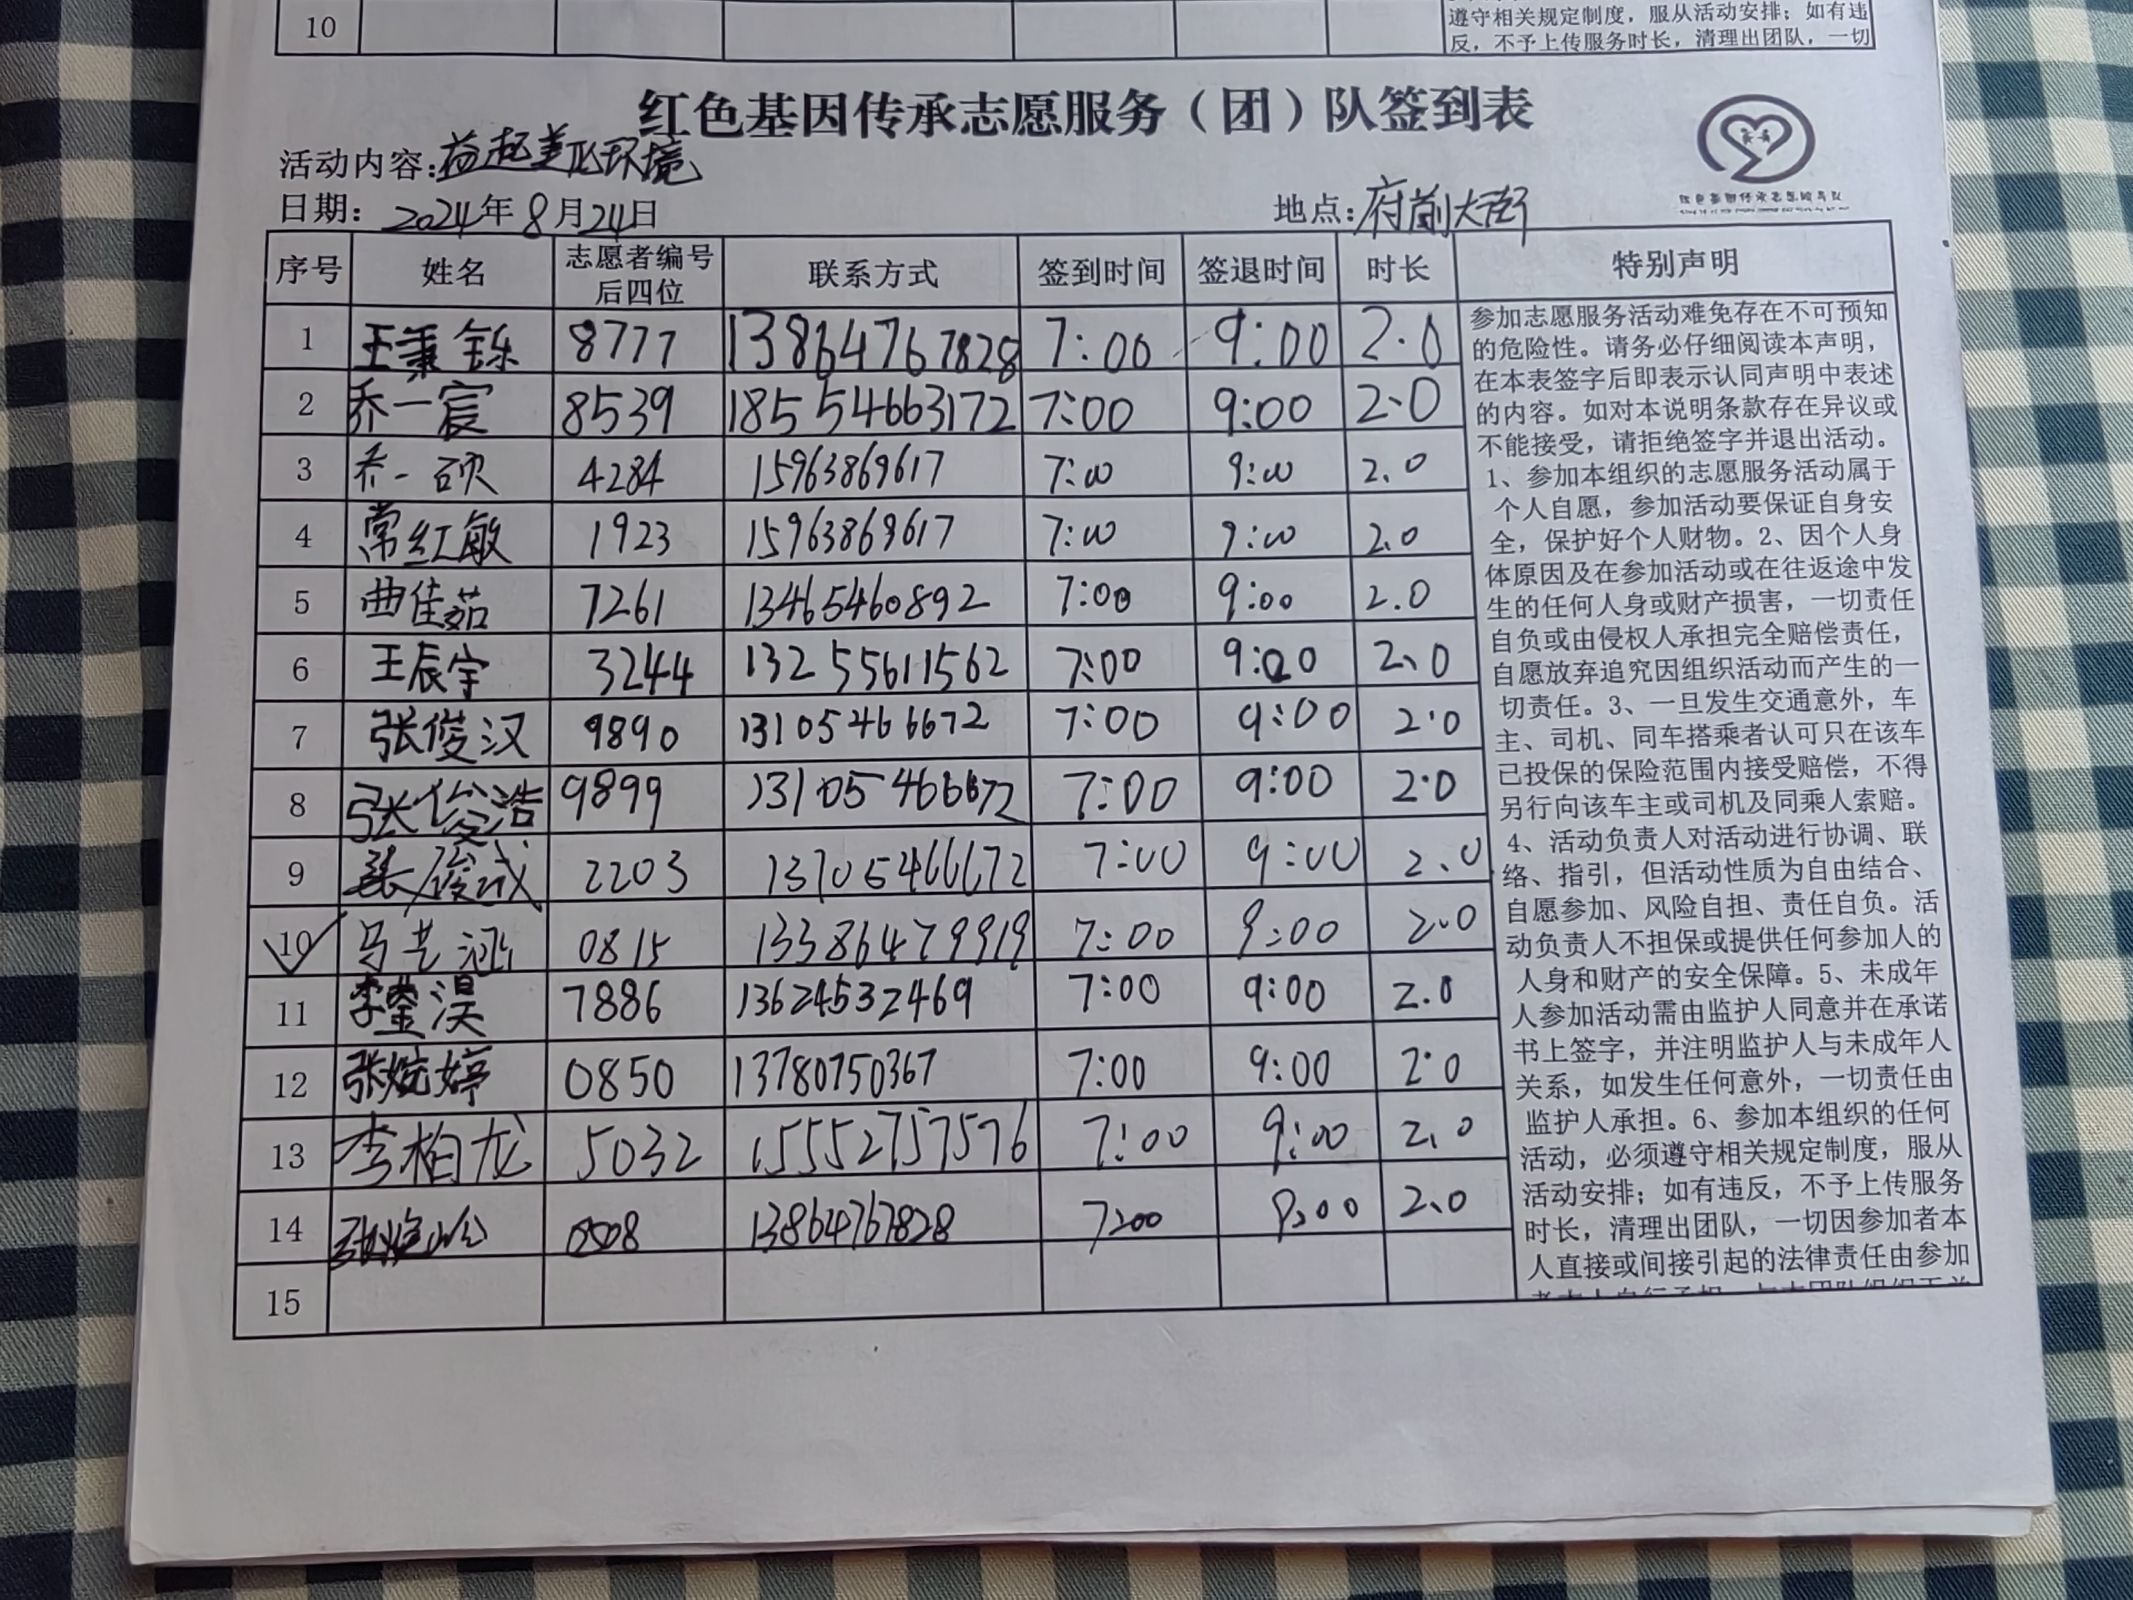 10
遵守相关规定制度，服从活动安排；如有违
反，不予上传服务时长，清理出团队，一切
红色基因传承志愿服务（团）队签到表
活动内容：益起美化环境
日期：2024年8月24日 地点：府前大街
序号 姓名 志愿者编号后四位 联系方式 签到时间 签退时间 时长 特别声明
1 王秉铄 8777 13864767828 7:00 9:00 2.0
2 乔一宸 8539 18554663172 7:00 9:00 2.0
3 乔一砅 4284 15963869617 7:00 9:00 2.0
4 常红敏 1923 15963869617 7:00 9:00 2.0
5 曲佳茹 7261 13465460892 7:00 9:00 2.0
6 王辰宇 3244 13255611562 7:00 9:00 2.0
7 张俊汉 9890 13105466672 7:00 9:00 2.0
8 张俊浩 9899 13105466672 7:00 9:00 2.0
9 张俊诚 2203 13105466672 7:00 9:00 2.0
10 马艺涵 0815 13386479919 7:00 9:00 2.0
11 李蓥淏 7886 13624532469 7:00 9:00 2.0
12 张婉婷 0850 13780750367 7:00 9:00 2.0
13 李柏龙 5032 15552757576 7:00 9:00 2.0
14 13864767828 7:00 9:00 2.0
15
参加志愿服务活动难免存在不可预知
的危险性。请务必仔细阅读本声明，
在本表签字后即表示认同声明中表述
的内容。如对本说明条款存在异议或
不能接受，请拒绝签字并退出活动。
1、参加本组织的志愿服务活动属于
个人自愿，参加活动要保证自身安
全，保护好个人财物。2、因个人身
体原因及在参加活动或在往返途中发
生的任何人身或财产损害，一切责任
自负或由侵权人承担完全赔偿责任，
自愿放弃追究因组织活动而产生的一
切责任。3、一旦发生交通意外，车
主、司机、同车搭乘者认可只在该车
已投保的保险范围内接受赔偿，不得
另行向该车主或司机及同乘人索赔。
4、活动负责人对活动进行协调、联
络、指引，但活动性质为自由结合、
自愿参加、风险自担、责任自负。活
动负责人不担保或提供任何参加人的
人身和财产的安全保障。5、未成年
人参加活动需由监护人同意并在承诺
书上签字，并注明监护人与未成年人
关系，如发生任何意外，一切责任由
监护人承担。6、参加本组织的任何
活动，必须遵守相关规定制度，服从
活动安排；如有违反，不予上传服务
时长，清理出团队，一切因参加者本
人直接或间接引起的法律责任由参加